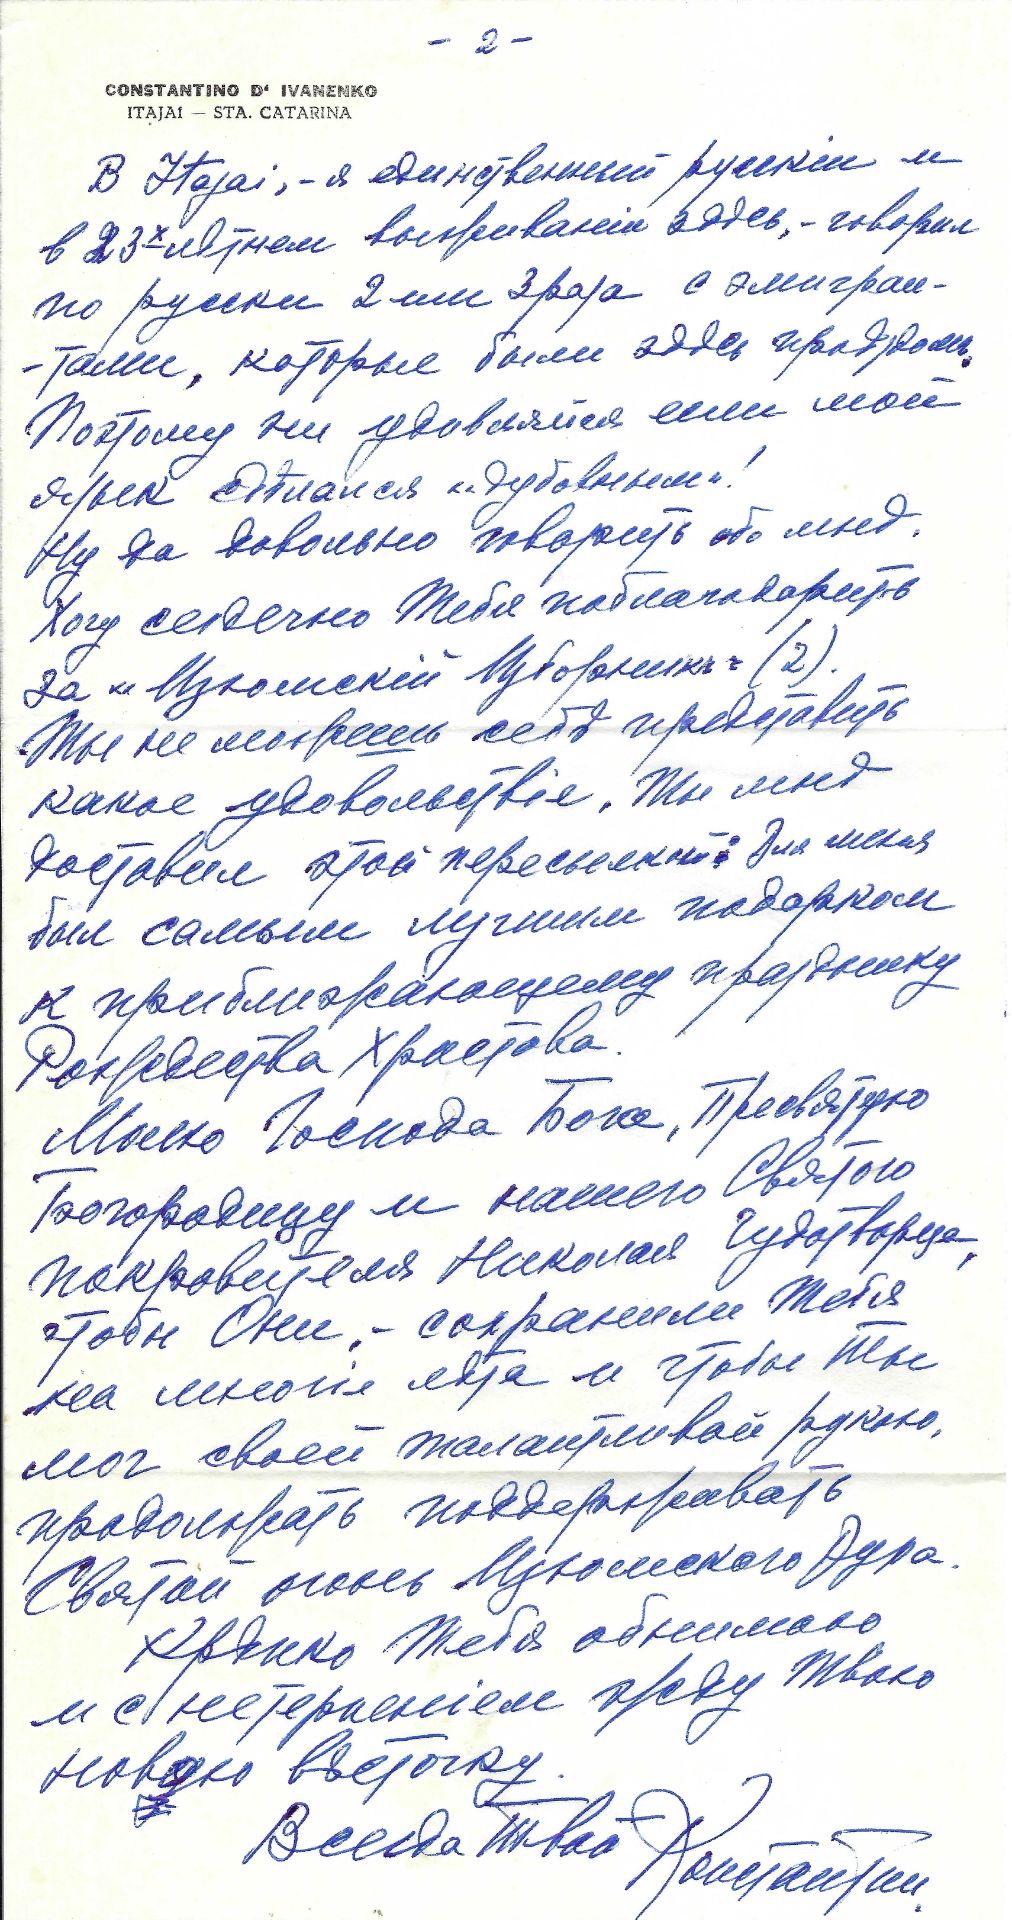 - 2 -
CONSTANTINO D' IVANENKO
ITAJAI — STA. CATARINA
В Itajai, - я единственный русскій и
в 23х лѣтнем здѣсь, - говорил
по русски 2 или 3 раза с эмигран-
-тами, которые были здѣсь проѣздом.
Поэтому ни удовляйся если мой
язык сдѣлался «дубовным»!
Ну да довольно говорить обо мнѣ.
Хочу сердечно Тебя поблагодарить
за «Изюмскій Изборник» (2).
Ты не можешь себѣ представить
какое удовольствіе, Ты мнѣ
доставил этой пересылкой: Для меня
был самым лучшим подарком
к приближающему празднику
Рождества Христова.
Молю Господа Бога, Пресвятую
Богородицу и нашего Святого
покровителя Николая Чудотворца,
чтобы Они, - сохранили Тебя
на многіе лѣта и чтобы Ты
мог своей талантливой рукою,
продолжать поддерживать
Святой огонь Изюмского Духа.
Крѣпко Тебя обнимаю
и с нетерпеніем жду Твою
новую вѣсточку.
Всегда Твой Константин.